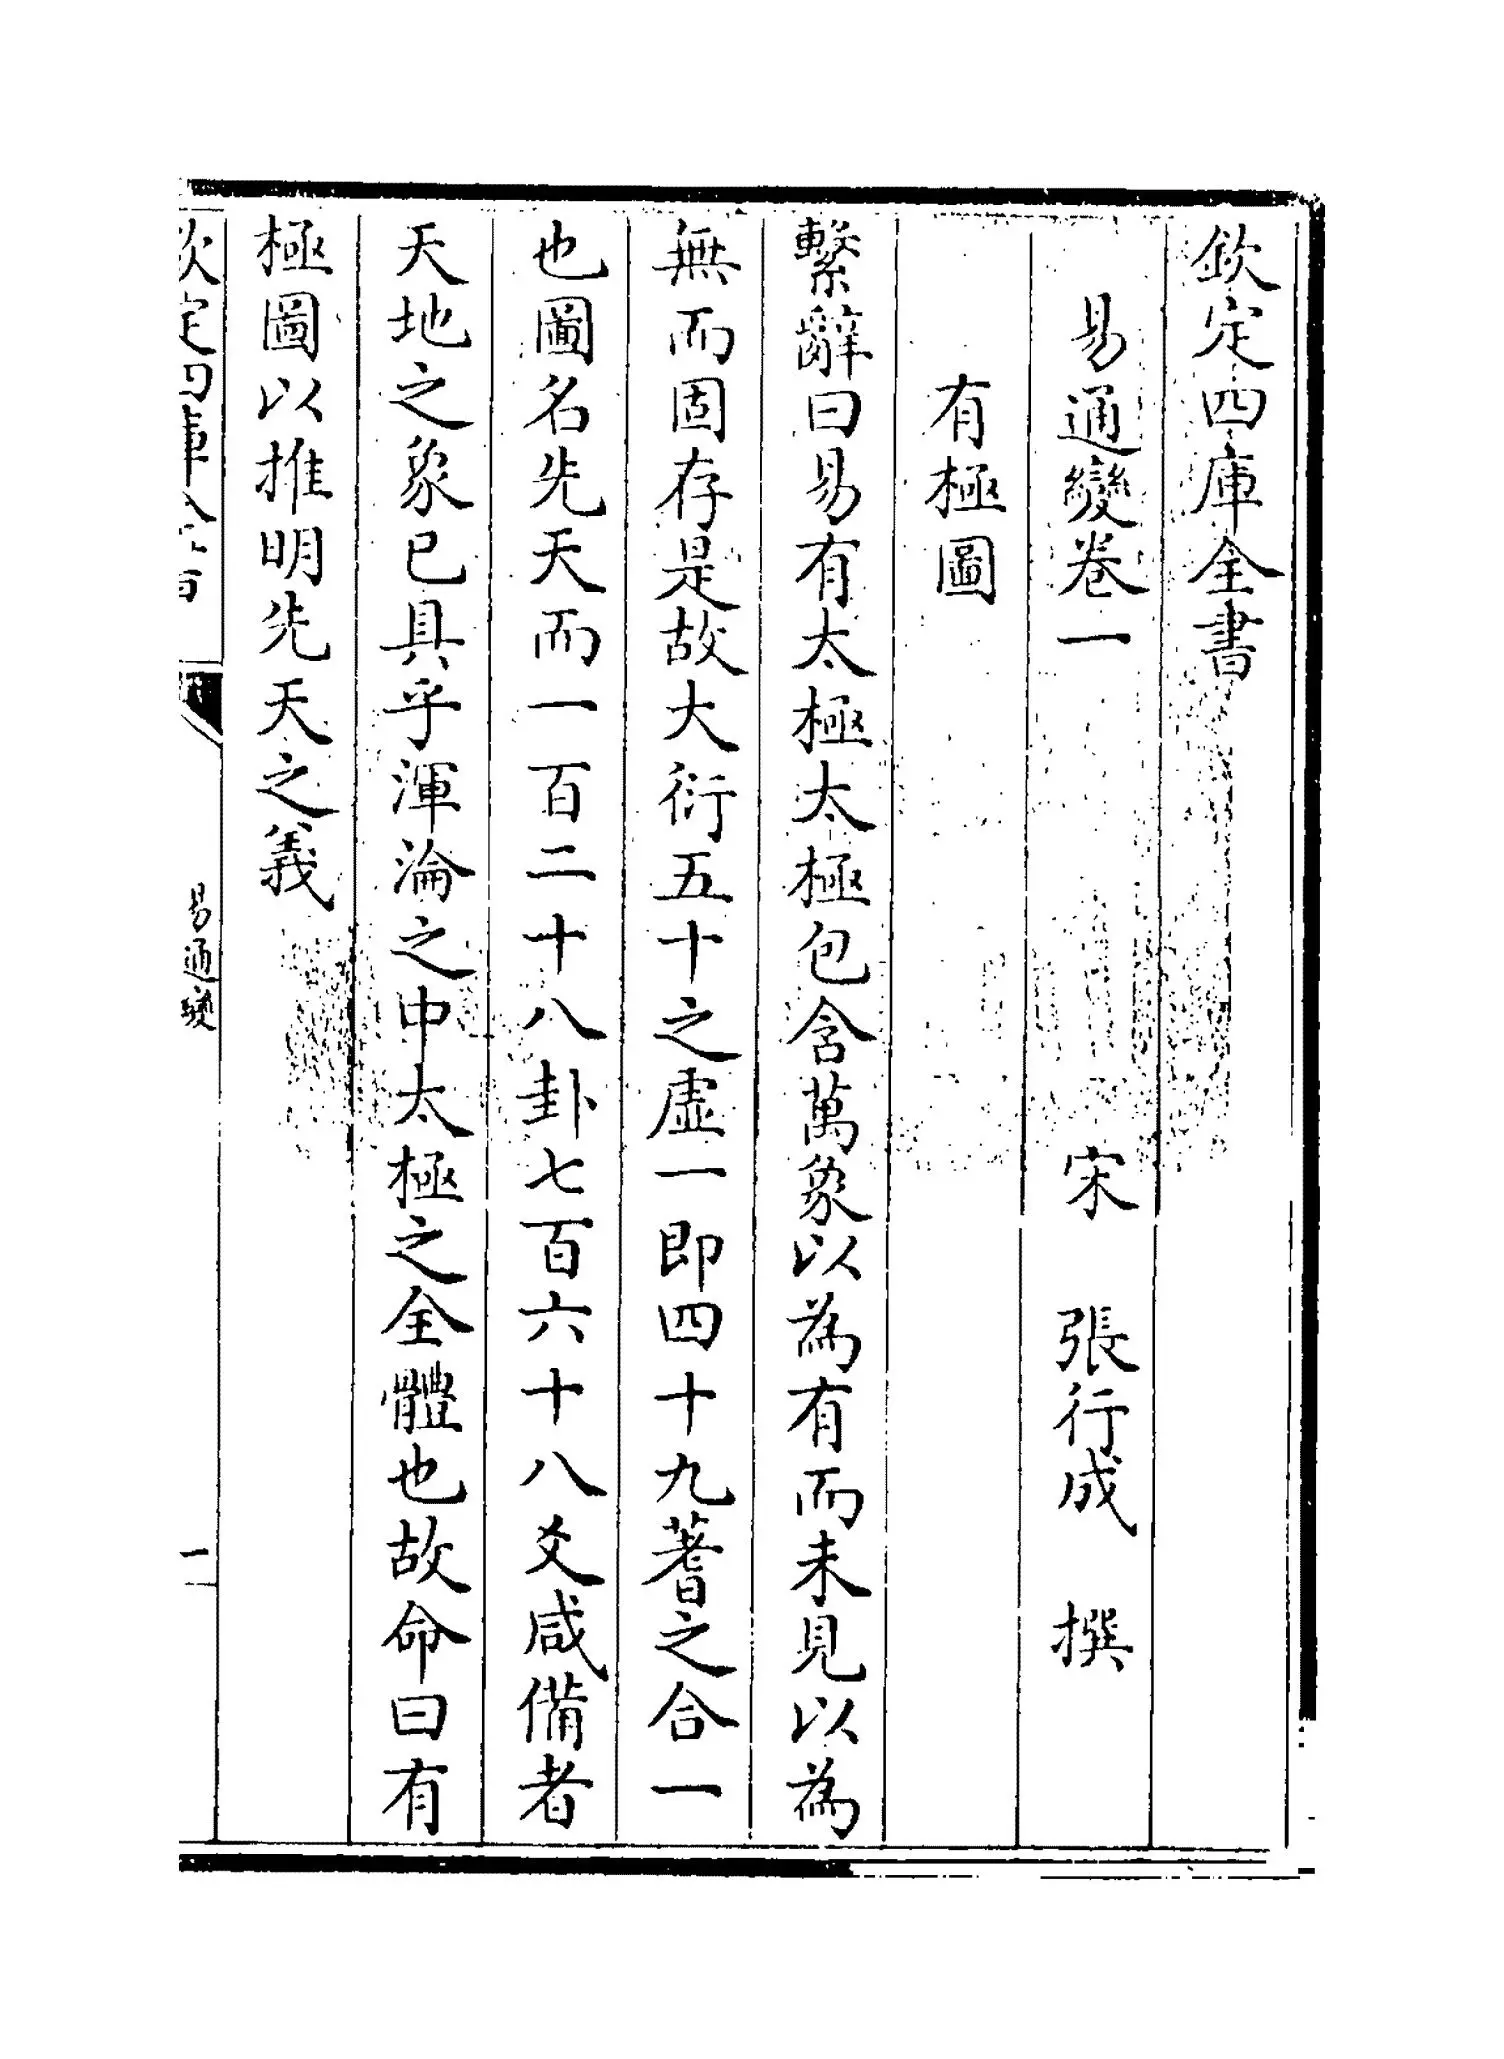 欽定四庫全書
易通變卷一 宋 張行成 撰
有極圖
繫辭曰易有太極太極包含萬象以為有而未見以為
無而固存是故大衍五十之虛一即四十九蓍之合一
也圖名先天而一百二十八卦七百六十八爻咸備者
天地之象已具乎渾淪之中太極之全體也故命曰有
極圖以推明先天之義
易通變
一